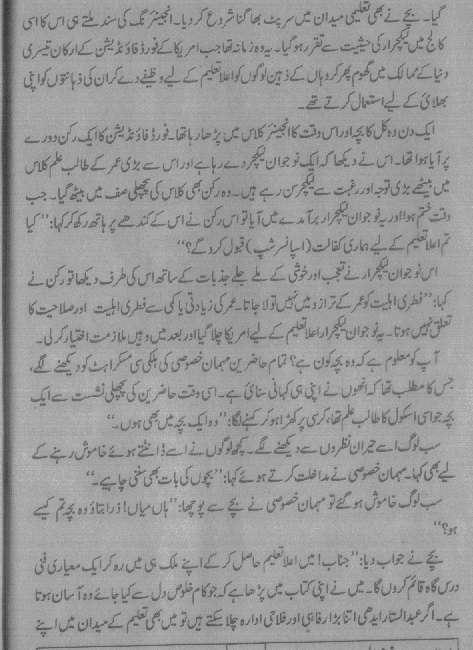 گیا۔ بچے نے بھی تعلیمی میدان میں سرپٹ بھاگنا شروع کر دیا۔ انجینئرنگ کی سند ملتے ہی اس کا اسی
کالج میں لیکچرار کی حیثیت سے تقرر ہو گیا۔ یہ وہ زمانہ تھا جب امریکا کے فورڈ فاؤنڈیشن کے ارکان تیسری
دنیا کے ممالک میں گھوم پھر کر وہاں کے ذہین لوگوں کو اعلا تعلیم کے لیے وظیفے دے کر ان کی ذہانتوں کو اپنی
بھلائی کے لیے استعمال کرتے تھے۔
ایک دن وہ کل کا بچہ اور اس وقت کا انجینئر کلاس میں پڑھا رہا تھا۔ فورڈ فاؤنڈیشن کا ایک رکن دورے
پر آیا ہوا تھا۔ اس نے دیکھا کہ ایک نوجوان لیکچر دے رہا ہے اور اس سے بڑی عمر کے طالب علم کلاس
میں بیٹھے بڑی توجہ اور رغبت سے لیکچر سن رہے ہیں۔ وہ رکن بھی کلاس کی پچھلی صف میں بیٹھ گیا۔ جب
وقت ختم ہوا اور یہ نوجوان لیکچرار برآمدے میں آیا تو اس رکن نے اس کے کندھے پر ہاتھ رکھ کر کہا: ”کیا
تم اعلا تعلیم کے لیے ہماری کفالت (اسپانسر شپ) قبول کرو گے؟“
اس نوجوان لیکچرار نے تعجب اور خوشی کے ملے جلے جذبات کے ساتھ اس کی طرف دیکھا تو رکن نے
کہا: ”فطری اہلیت کو عمر کے ترازو میں نہیں تولا جاتا۔ عمر کی زیادتی یا کمی سے فطری اہلیت اور صلاحیت کا
تعلق نہیں ہوتا۔ یہ نوجوان لیکچرار اعلا تعلیم کے لیے امریکا چلا گیا اور بعد میں وہیں ملازمت اختیار کر لی۔
آپ کو معلوم ہے کہ وہ بچہ کون ہے؟ تمام حاضرین مہمان خصوصی کی ہلکی سی مسکراہٹ کو دیکھنے لگے،
جس کا مطلب تھا کہ انھوں نے اپنی ہی کہانی سنائی ہے۔ اسی وقت حاضرین کی پچھلی نشست سے ایک
بچہ جو اسی اسکول کا طالب علم تھا، کرسی پر کھڑا ہو کر کہنے لگا: ”وہ ایک بچہ میں بھی ہوں۔“
سب لوگ اسے حیران نظروں سے دیکھنے لگے۔ کچھ لوگوں نے اسے ڈانٹتے ہوئے خاموش رہنے کے
لیے بھی کہا۔ مہمان خصوصی نے مداخلت کرتے ہوئے کہا: ”بچوں کی بات بھی سننی چاہیے۔“
سب لوگ خاموش ہو گئے تو مہمان خصوصی نے بچے سے پوچھا: ”ہاں میاں! ذرا بتاؤ وہ بچہ تم کیسے
ہو؟“
بچے نے جواب دیا: ”جناب! میں اعلا تعلیم حاصل کر کے اپنے ملک ہی میں رہ کر ایک معیاری فنی
درس گاہ قائم کروں گا۔ میں نے اپنی کتاب میں پڑھا ہے کہ جو کام خلوص دل سے کیا جائے وہ آسان ہوتا
ہے۔ اگر عبدالستار ایدھی اتنا بڑا رفاہی اور فلاحی ادارہ چلا سکتے ہیں تو میں بھی تعلیم کے میدان میں اپنے